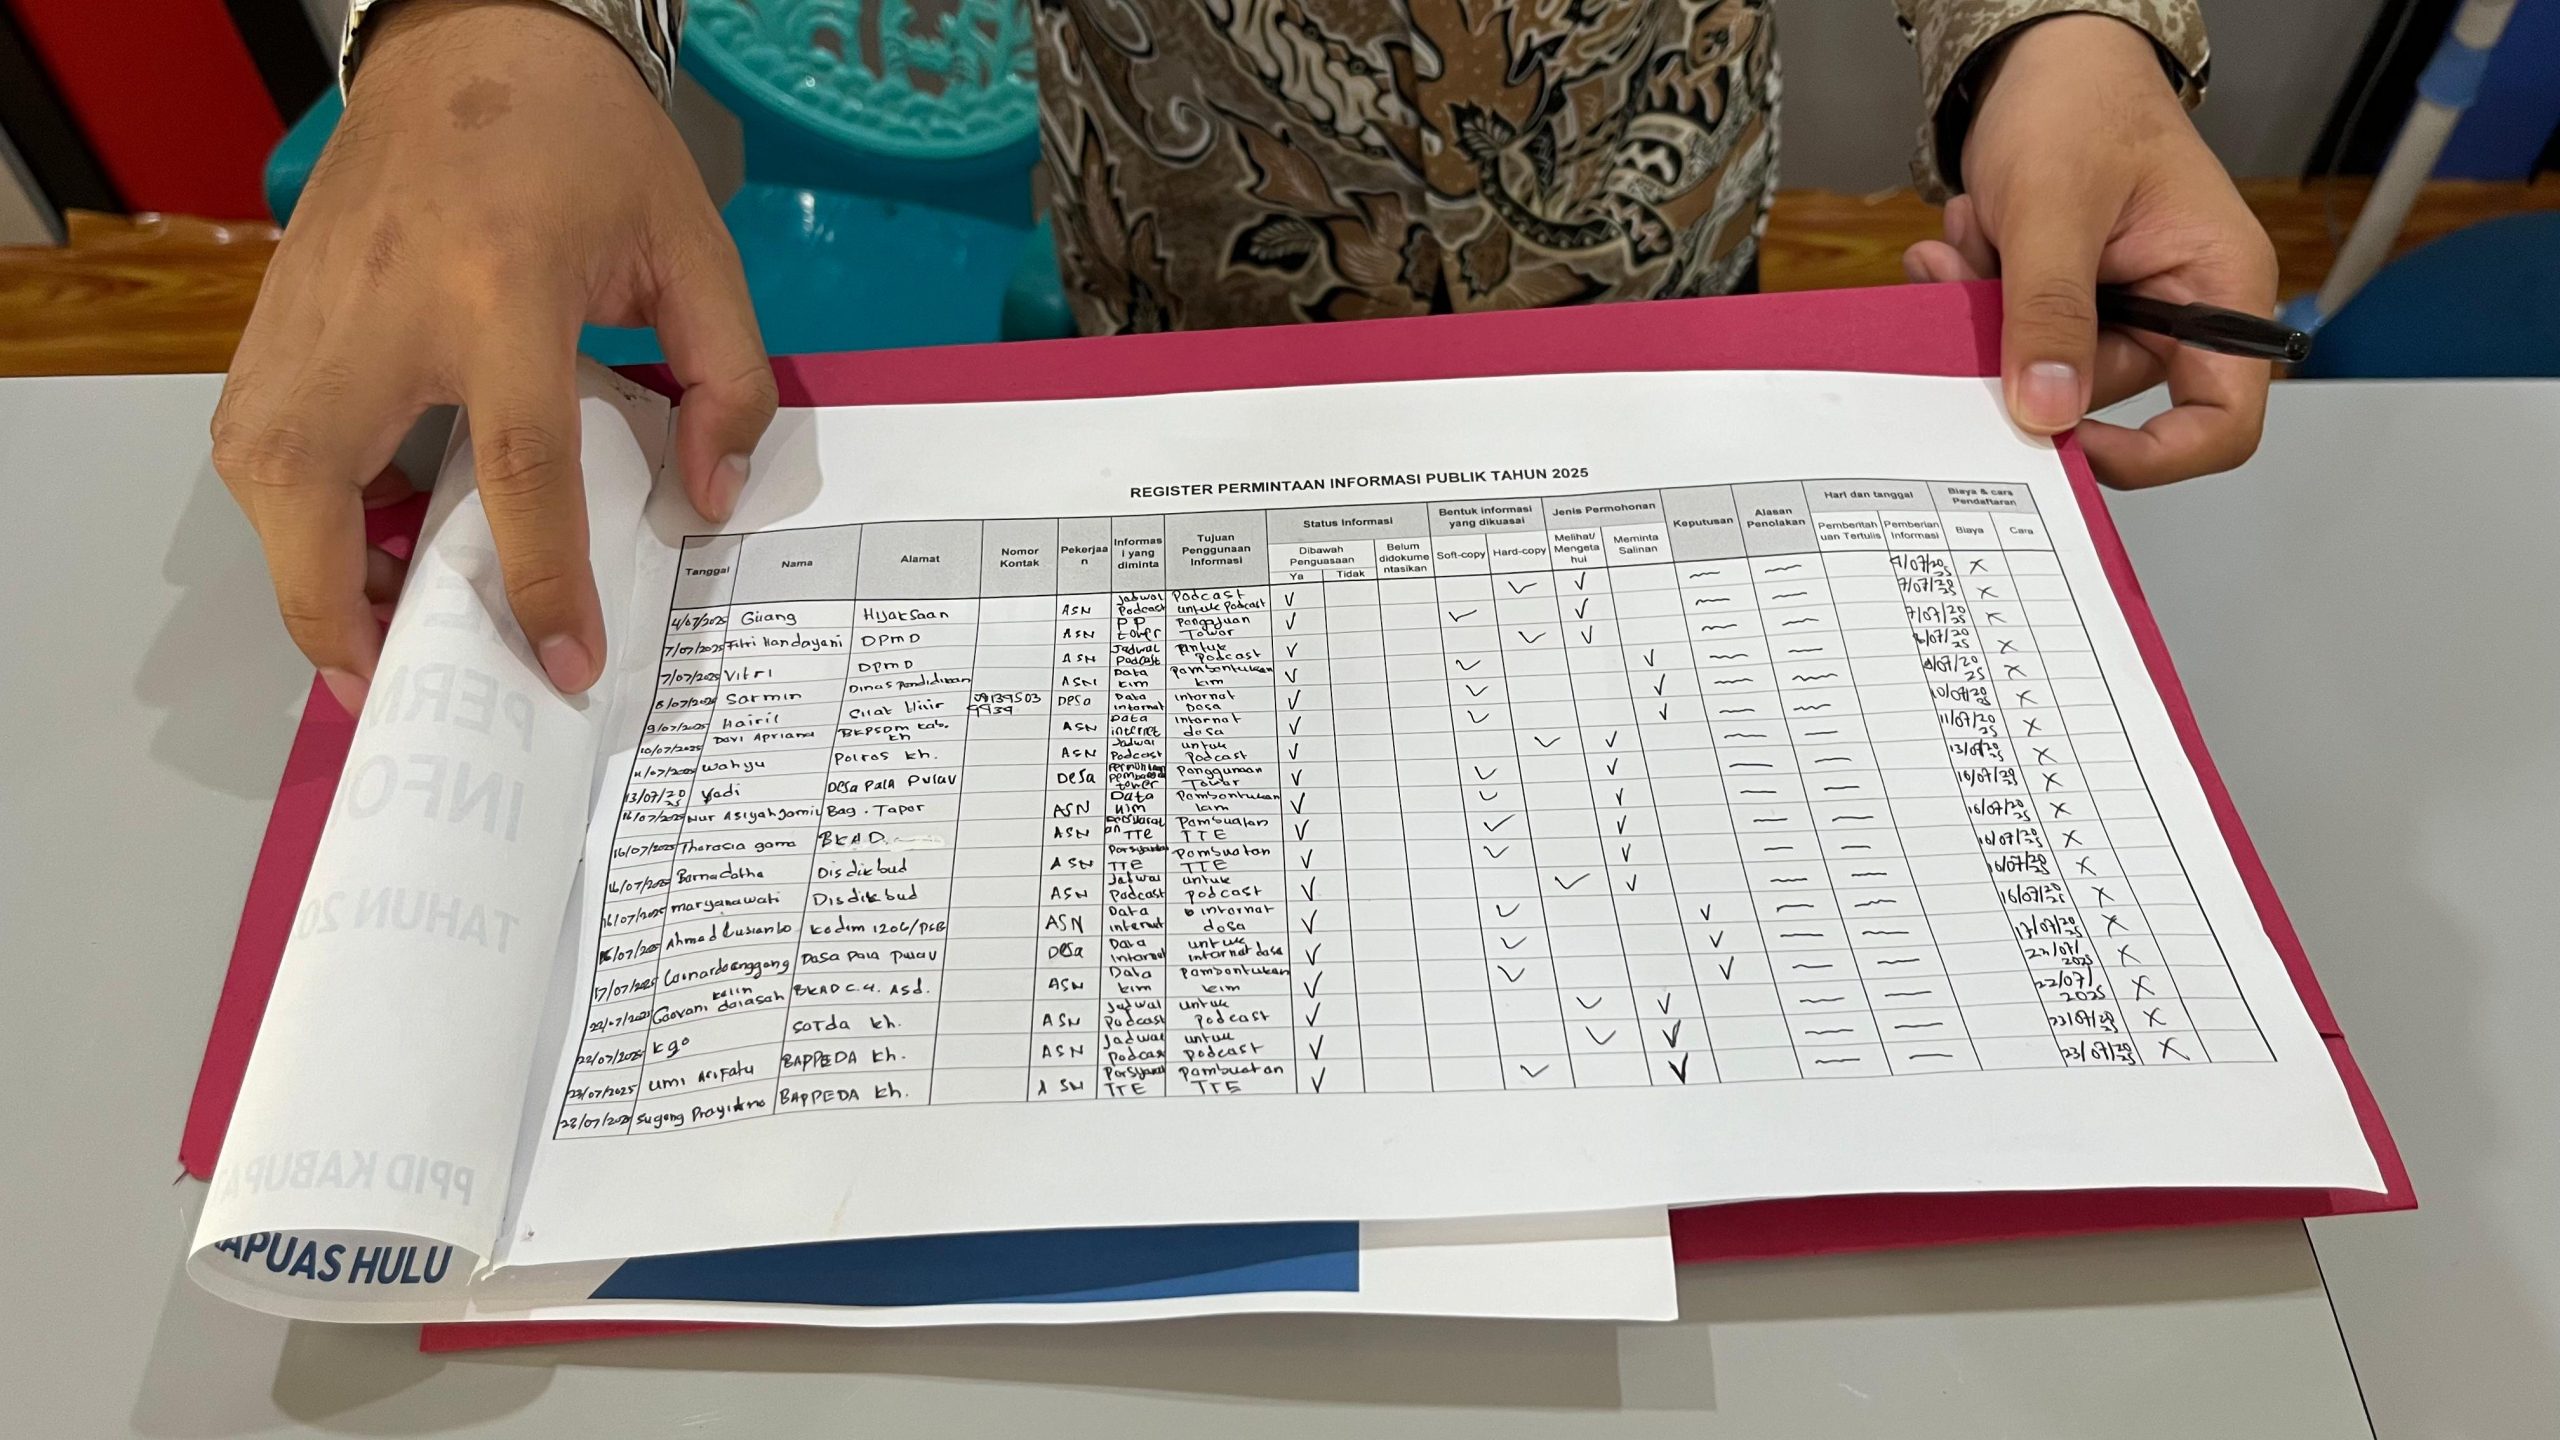 REGISTER PERMINTAAN INFORMASI PUBLIK TAHUN 2025
Tanggal Nama Alamat Nomor Kontak Pekerjaan Informasi yang diminta Tujuan Penggunaan Informasi Status Informasi Bentuk Informasi yang dikuasai Jenis Permohonan Keputusan Alasan Penolakan Hari dan tanggal Biaya & cara Pendaftaran
Dibawah Penguasaan Belum didokumentasikan Soft-copy Hard-copy Melihat/Mengetahui Meminta Salinan Pemberitahuan Tertulis Pemberian Informasi Biaya Cara
Ya Tidak
4/07/2025 Giiang Hijaksaan ASN Jadwal Podcast Podcast untuk Podcast ✓ ✓ ✓ — — X
7/07/2025 Fitri Handayani DPMD ASN PP tower Pengajuan Towar ✓ ✓ ✓ — — 7/07/2025 X
7/07/2025 Vitri DPMD ASN Jadwal Podcast untuk Podcast ✓ ✓ ✓ — — 7/07/2025 X
8/07/2025 Sarmin Dinas Pendidikan ASN Data kim Pambontukan kim ✓ ✓ ✓ — — 8/07/2025 X
9/07/2025 Hairil Desa Data Internat Internat Dosa ✓ ✓ ✓ — — X
10/07/2025 Davi Apriana BKPSDM Kab. kh ASN Data internet internat dosa ✓ ✓ ✓ — — 10/07/2025 X
11/07/2025 Wahyu Polros kh. ASN Jadwal Podcast untuk Podcast ✓ ✓ ✓ — — 11/07/2025 X
13/07/2025 Yadi Desa Pala Pulau Desa tower Ponggunaan Towor ✓ ✓ ✓ — — 13/07/2025 X
16/07/2025 Nur Asiyah Jamil Bag. Tapor ASN Data kim Pambontukan kim ✓ ✓ ✓ — — 16/07/2025 X
16/07/2025 Tharasia gama BKAD ASN TTE Pambuatan TTE ✓ ✓ ✓ — — 16/07/2025 X
16/07/2025 Barnadatha Disdikbud ASN TTE Pambuatan TTE ✓ ✓ ✓ — — 16/07/2025 X
16/07/2025 maryanawati Disdikbud ASN Jadwal Podcast untuk podcast ✓ ✓ ✓ — — 16/07/2025 X
16/07/2025 Ahmad Kodim 1206/PSB ASN Data internet internat dosa ✓ ✓ ✓ — — 16/07/2025 X
17/07/2025 Dasa Pala Pulau Desa Data Internat untuk internat dosa ✓ ✓ ✓ — — 17/07/2025 X
22/07/2025 BKAD ASN Data kim Pambontukan kim ✓ ✓ ✓ — — X
22/07/2025 kgo SOTda kh. ASN Jadwal Podcast untuk podcast ✓ ✓ ✓ — — 22/07/2025 X
23/07/2025 Umi Arifatu BAPPEDA kh. ASN Jadwal Podcast untuk podcast ✓ ✓ ✓ — — 23/07/2025 X
23/07/2025 Sugong Prayitno BAPPEDA kh. ASN TTE Pambuatan TTE ✓ ✓ ✓ — — 23/07/2025 X
TAHUN 20
PPID KABUPA
APUAS HULU